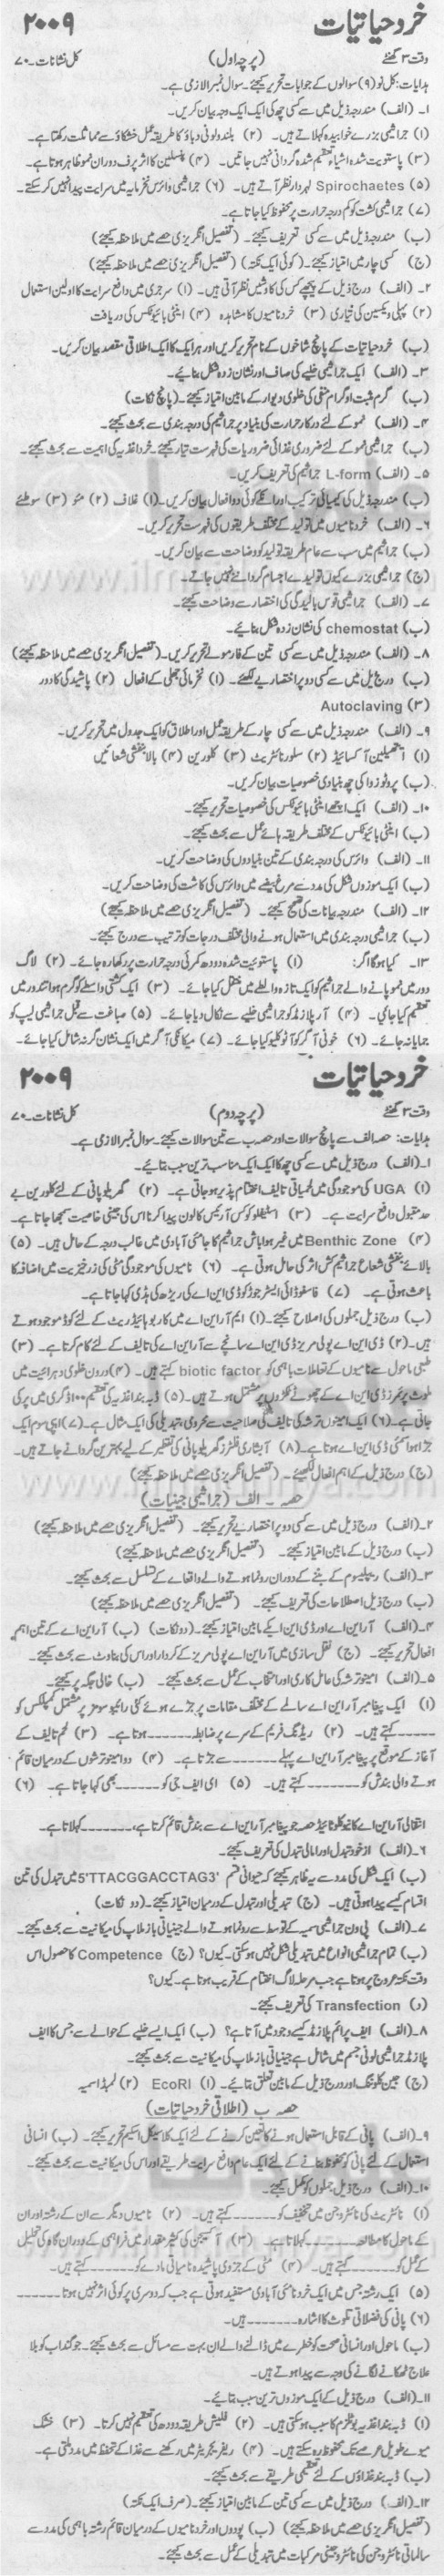 خرد حیاتیات ۲۰۰۹
وقت ۳ گھنٹے (پرچہ اول) کل نشانات۔۷۰
ہدایات: کل نو (۹) سوالوں کے جوابات تحریر کیجئے۔ سوال نمبرا لازمی ہے۔
۱۔ (الف) مندرجہ ذیل میں سے کسی چھ کی ایک ایک وجہ بیان کریں۔
(۱) جراثیمی بزرے خوابیدہ کہلاتے ہیں۔ (۲) بلند ولونی دباؤ کا طریقہ عمل خشکاؤ سے مماثلت رکھتا ہے۔
(۳) پاستویت شدہ اشیاء تعقیم شدہ گردانی نہیں جاتیں۔ (۴) پنسلین کا اثر صرف دوران نمو ظاہر ہوتا ہے۔
(۵) Spirochaetes لہردار نظر آتے ہیں۔ (۶) جراثیمی وائرس نخرمایہ میں سرایت پیدا نہیں کر سکتے۔
(۷) جراثیمی کشت کو کم درجہ حرارت پر محفوظ کیا جاتا ہے۔
(ب) مندرجہ ذیل میں سے کسی تعریف کیجئے۔ (تفصیل انگریزی حصے میں ملاحظہ کیجئے)
(ج) کسی چار میں امتیاز کیجئے۔ (کوئی ایک نکتہ) (تفصیل انگریزی حصے میں ملاحظہ کیجئے)
۲۔ (الف) درج ذیل کے پیچھے کس کی کاوشیں نظر آتی ہیں۔ (۱) سرجری میں دافع سرایت کا اولین استعمال
(۲) پہلی ویکسین کی تیاری (۳) خردنامیوں کا مشاہدہ (۴) اینٹی بائیوٹکس کی دریافت
(ب) خرد حیاتیات کے پانچ شاخوں کے نام تحریر کریں اور ہر ایک کا ایک اطلاقی مقصد بیان کریں۔
۳۔ (الف) ایک جراثیمی خلیے کی صاف اور نشان زدہ شکل بنائیے۔
(ب) گرم مثبت اور گرام منفی کی خلوی دیوار کے مابین امتیاز کیجئے۔ (پانچ نکات)
۴۔ (الف) نمو کے لئے درکار حرارت کی بنیاد پر جراثیم کی درجہ بندی سے بحث کیجئے۔
(ب) جراثیمی نمو کے لئے ضروری غذائی ضروریات کی فہرست تیار کیجئے۔ خرد اغذیہ کی اہمیت سے بحث کیجئے۔
۵۔ (الف) L-form جراثیم کی تعریف کریں۔
(ب) مندرجہ ذیل کی کیمیائی ترکیب اور انکے کوئی دو افعال بیان کریں۔ (۱) غلاف (۲) مو (۳) سوطئے
۶۔ (الف) خردنامیوں میں تولید کے مختلف طریقوں کی فہرست تحریر کریں۔
(ب) جراثیم میں سب سے عام طریقہ تولید کو وضاحت سے بیان کریں۔
(ج) جراثیمی بزرے کیوں تولیدے اجسام گردانے نہیں جاتے۔
۷۔ (الف) جراثیمی قوس بالیدگی کی اختصار سے وضاحت کیجئے۔
(ب) chemostat کی نشان زدہ شکل بنائیے۔
۸۔ (الف) مندرجہ ذیل میں سے کسی تین کے فارمولے تحریر کریں۔ (تفصیل انگریزی حصے میں ملاحظہ کیجئے)
(ب) درج ذیل میں سے کسی دو پر اختصاریے لکھئے۔ (۱) نخرمائی جھلی کے افعال (۲) پاشیدگی کا دور
(۳) Autoclaving
۹۔ (الف) مندرجہ ذیل میں سے کسی چار کے طریقہ عمل اور اطلاق کو ایک جدول میں تحریر کریں۔
(۱) ایتھیلین آکسائیڈ (۲) سلور نائٹریٹ (۳) کلورین (۴) بالا بنفشی شعائیں
(ب) پروٹوزوا کی چھ بنیادی خصوصیات بیان کریں۔
۱۰۔ (الف) ایک اچھے اینٹی بائیوٹکس کی خصوصیات تحریر کیجئے۔
(ب) اینٹی بائیوٹکس کے مختلف طریقہ ہائے عمل سے بحث کیجئے۔
۱۱۔ (الف) وائرس کی درجہ بندی کے تین بنیادوں کی وضاحت کریں۔
(ب) ایک موزوں شکل کی مدد سے مرغ بیضے میں وائرس کی کاشت کی وضاحت کریں۔
۱۲۔ (الف) مندرجہ بیانات کی تصحیح کیجئے۔ (تفصیل انگریزی حصے میں ملاحظہ کیجئے)
(ب) جراثیمی درجہ بندی میں استعمال ہونے والی مختلف درجات کو ترتیب سے درج کیجئے۔
۱۳۔ کیا ہوگا اگر: (۱) پاستویت شدہ دودھ کمرئی درجہ حرارت پر رکھا رہ جائے۔ (۲) لاگ
دور میں نمو پانے والے جراثیم کو ایک تازہ واسطے میں منتقل کیا جائے۔ (۳) ایک کشتی واسطے کو گرم ہوا تندور میں
تعقیم کیا جائے۔ (۴) آر پلازمڈ کو جراثیمی خلیے سے نکال دیا جائے۔ (۵) صباغت سے قبل جراثیمی لیپ کو
جمایا نہ جائے۔ (۶) خونی آگر کو آٹوکلیو کیا جائے۔ (۷) میکانکی آگر میں ایک نشان گر نہ شامل کیا جائے۔
خرد حیاتیات ۲۰۰۹
وقت ۳ گھنٹے (پرچہ دوم) کل نشانات۔۷۰
ہدایات: حصہ الف سے پانچ سوالات اور حصہ ب سے تین سوالات کیجئے۔ سوال نمبرا لازمی ہے۔
۱۔ (الف) درج ذیل میں سے کسی چھ کا ایک ایک مناسب ترین سبب بتائیے۔
(۱) UGA کی موجودگی میں لحمیاتی تالیف اختتام پذیر ہو جاتی ہے۔ (۲) گھریلو پانی کے لئے کلورین بے
حد مقبول دافع سرایت ہے۔ (۳) اسٹیفلوکوکس آریس کا لون پیدا کرنا اس کی جینی خاصیت سمجھا جاتا ہے۔
(۴) Benthic Zone میں غیر ہوا باش جراثیم کا جماعتی آبادی میں غالب درجہ کے حامل ہیں۔ (۵)
بالائے بنفشی شعاع جراثیم کش اثر کی حامل ہوتی ہے۔ (۶) نامیوں کی موجودگی مٹی کی زرخیزیت میں اضافہ کا
باعث ہوتی ہے۔ (۷) فاسفوڈائی ایسٹر جوڑ کو ڈی این اے کی ریڑھ کی ہڈی کہا جاتا ہے۔
(ب) درج ذیل جملوں کی اصلاح کیجئے۔ (۱) ایم آر این اے میں کاربوہائیڈریٹ کے لئے کوڈ موجود ہوتے
ہیں۔ (۲) ڈی این اے پولی مریز ڈی این اے سانچے سے آر این اے کی تالیف کے لئے کام کرتا ہے۔ (۳)
طبعی ماحول سے نامیوں کے تعاملات باہمی کو biotic factor کہتے ہیں۔ (۴) درون خلوی دہرائیت میں
ملوث پرائمرز ڈی این اے کے چھوٹے ٹکڑوں پر مشتمل ہوتے ہیں۔ (۵) ڈبہ بند اغذیہ کی تعقیم ۱۰۰ ڈگری میں پر کی
جاتی ہے۔ (۶) ایک امینو ترشہ کی تالیف کی صلاحیت سے محرومی تبدیلی کی ایک مثال ہے۔ (۷) ایپی سوم ایک
جڑا ہوا کمتی ڈی این اے ہوتا ہے۔ (۸) آبشاری فلٹرز گھریلو پانی کی تقطیر کے لیے بہترین گردانے جاتے ہیں۔
(ج) درج ذیل کے اہم افعال لکھیئے۔ (تفصیل انگریزی حصے میں ملاحظہ کیجئے)
حصہ ۔ الف (جراثیمی جینیات)
۲۔ (الف) درج ذیل میں سے کسی دو پر اختصاریے تحریر کیجئے۔ (تفصیل انگریزی حصے میں ملاحظہ کیجئے)
(ب) درج ذیل کے مابین امتیاز کیجئے۔ (تفصیل انگریزی حصے میں ملاحظہ کیجئے)
۳۔ (الف) ریپلیسوم کے بننے کے دوران رونما ہونے والے واقعات کے تسلسل سے بحث کیجئے۔
(ب) درج ذیل اصطلاحات کی تعریف کیجئے۔ (تفصیل انگریزی حصے میں ملاحظہ کیجئے)
۴۔ (الف) آر این اے اور ڈی این اے کے مابین امتیاز کیجئے۔ (دو نکات) (ب) آر این اے کے تین اہم
افعال تحریر کیجئے۔ (ج) نقل سازی میں آر این اے پولی مریز کے کردار اور اس کی بناوٹ سے بحث کیجئے۔
۵۔ (الف) امینو ترشہ کی عامل کاری اور انتخاب کے عمل سے بحث کیجئے۔ (ب) خالی جگہ پر کیجئے۔
(۱) ایک پیغامبر آر این اے سالمے کے مختلف مقامات پر جڑے ہوئے کئی رائبوسومز پر مشتمل کمپلکس کو
------ کہتے ہیں۔ (۲) ریڈنگ فریم کے سرے پر ضابطہ ------ ہوتا ہے۔ (۳) لحم تالیف کے
آغاز کے موقع پر پیغامبر آر این اے پہلے ------ سے جڑتا ہے۔ (۴) دو امینو ترشوں کے درمیان قائم
ہونے والی بندش کو ------ کہتے ہیں۔ (۵) ای ایف جی کو ------ بھی کہا جاتا ہے۔ (۶)
انتقالی آر این اے کا نیوکلوٹائیڈ حصہ جو پیغامبر آر این اے سے بندش قائم کرتا ہے، ------ کہلاتا ہے۔
۶۔ (الف) از خود تبدل اور امالی تبدل کی تعریف کیجئے۔
(ب) ایک شکل کی مدد سے یہ ظاہر کیجئے کہ حیوانی قسم 5'TTACGGACCTAG3' میں تبدل کی تین
اقسام کیسے پیدا ہوتی ہیں۔ (ج) تبدیلی اور تبدل کے درمیان امتیاز کیجئے۔ (دو نکات)
۷۔ (الف) پی ون جراثیمی سمیہ کے توسط سے رونما ہونے والے جینیاتی باز ملاپ کی میکانیت سے بحث کیجئے۔
(ب) تمام جراثیمی انواع میں تبدیلی شکل نہیں ہو سکتی۔ کیوں؟ (ج) Competence کا حصول اس
وقت نکتہ عروج پر ہوتا ہے جب مرحلہ لاگ اختتام کے قریب ہوتا ہے۔ کیوں؟
(د) Transfection کی تعریف کیجئے۔
۸۔ (الف) ایف پرائم پلازمڈ کیسے وجود میں آتا ہے؟ (ب) ایک ایسے خلیے کے حوالے سے جس کا ایف
پلازمڈ جراثیمی لونی جسم میں شامل ہے جینیاتی باز ملاپ کی میکانیت سے بحث کیجئے۔
(ج) جین کلوننگ اور درج ذیل کے مابین تعلق بتائیے۔ (۱) EcoRI (۲) لمبڈا سمیہ
حصہ ب (اطلاقی خرد حیاتیات)
۹۔ (الف) پانی کے قابل استعمال ہونے کا تعین کرنے کے لئے ایک کلاسیکل اسکیم تحریر کیجئے۔ (ب) انسانی
استعمال کے لئے پانی کو محفوظ بنانے کے لئے ایک عام دافع سرایت طریقے اور اس کی میکانیت سے بحث کیجئے۔
۱۰۔ (الف) درج ذیل جملوں کو مکمل کیجئے۔
(۱) نائٹریٹ کی نائٹروجن میں تخفیف کو ------ کہتے ہیں۔ (۲) نامیوں دیگر سے ان کے رشتہ اور ان
کے ماحول کا مطالعہ ------ کہلاتا ہے۔ (۳) آکسیجن کی کثیر مقدار میں فراہمی کے دوران گاد کی تحلیل
کے عمل کو ------ کہتے ہیں۔ (۴) مٹی کے جزوی پاشیدہ نامیاتی مادے کو ------ کہتے ہیں۔
(۵) ایک رشتہ جس میں ایک خردنامئی آبادی مستفید ہوتی ہے جب کہ دوسری پر کوئی اثر نہیں ہوتا ------
(۶) پانی کی فضلاتی تلوث کا اشارہ ------ ہیں۔
(ب) ماحول اور انسانی صحت کو خطرے میں ڈالنے والے ان بہت سے مسائل سے بحث کیجئے۔ جو گنداب کو بلا
علاج ٹھکانے لگانے کی وجہ سے پیدا ہوتے ہیں۔
۱۱۔ (الف) درج ذیل کے ایک موزوں ترین سبب بتائیے۔
(۱) ڈبہ بند اغذیہ بوٹلزم کا سبب ہو سکتی ہیں۔ (۲) فلیش طریقہ دودھ کی تعقیم نہیں کرتا۔ (۳) خشک
میوے طویل عرصے تک محفوظ رہ سکتے ہیں۔ (۴) ریفریجریٹر میں رکھنے سے غذا کے تحفظ میں مدد ملتی ہے۔
(ب) ڈبہ بند غذاؤں کے لئے تعقیمی طریقے سے بحث کیجئے۔
۱۲۔ (الف) درج ذیل میں سے کسی تین کے مابین امتیاز کیجئے۔ (صرف ایک نکتہ)
(تفصیل انگریزی حصے میں ملاحظہ کیجئے) (ب) پودوں اور خردنامیوں کے درمیان قائم رشتہ باہمی کی مدد سے
سالماتی نائٹروجن کی نائٹروجینی مرکبات میں تبدیلی کے عمل سے بحث کیجئے۔